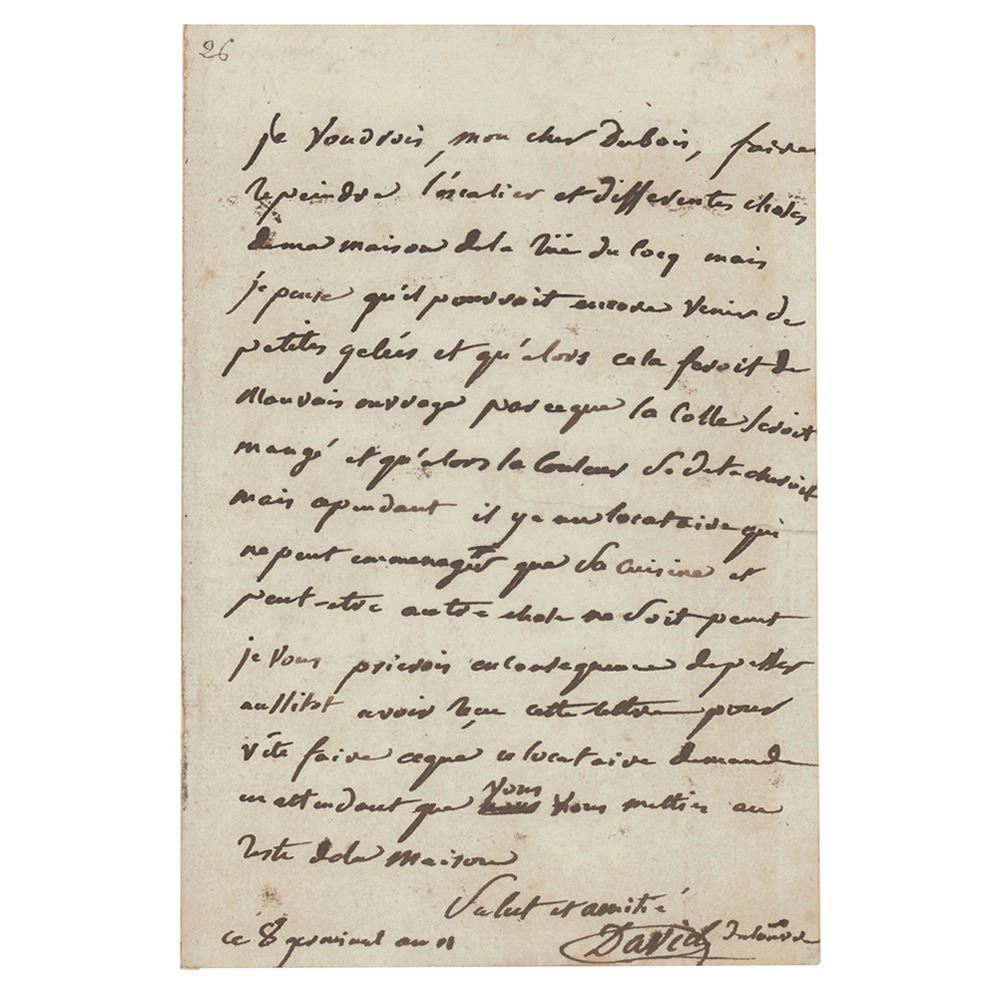 26
je voudrois, mon cher Dubois, faire
repeindre l'escalier et differentes choses
de ma maison de la rüe du Cocq mais
je pense qu'il pourroit encore venir de
petites gelées et qu'alors cela feroit de
mauvais ouvrage parceque la Colle seroit
mangé et qu'alors la Couleur se detacheroit
mais cependant il y a un locataire qui
ne peut emmenager que sa cuisine et
peut-etre autre chose ne soit peint
je vous prierois en consequence de
aussitot avoir reçu cette lettre pour
vite faire ceque ce locataire demande
en attendant que vous vous mettiez au
reste de la maison
Salut et amitié
ce 8 germinal an 11
David